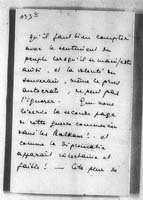 qu'il faut bien compter
avec le sentiment du
peuple lorsqu'il se manifeste
ainsi, et la volonté du
souverain, même le plus
autocrate, ne peut pas
l'ignorer. Qui nous
la seconde page
de cette guerre commencée
dans les Balkans? et
comme la Diplomatie
apparaît incertaine et
faible! — Cela peut se